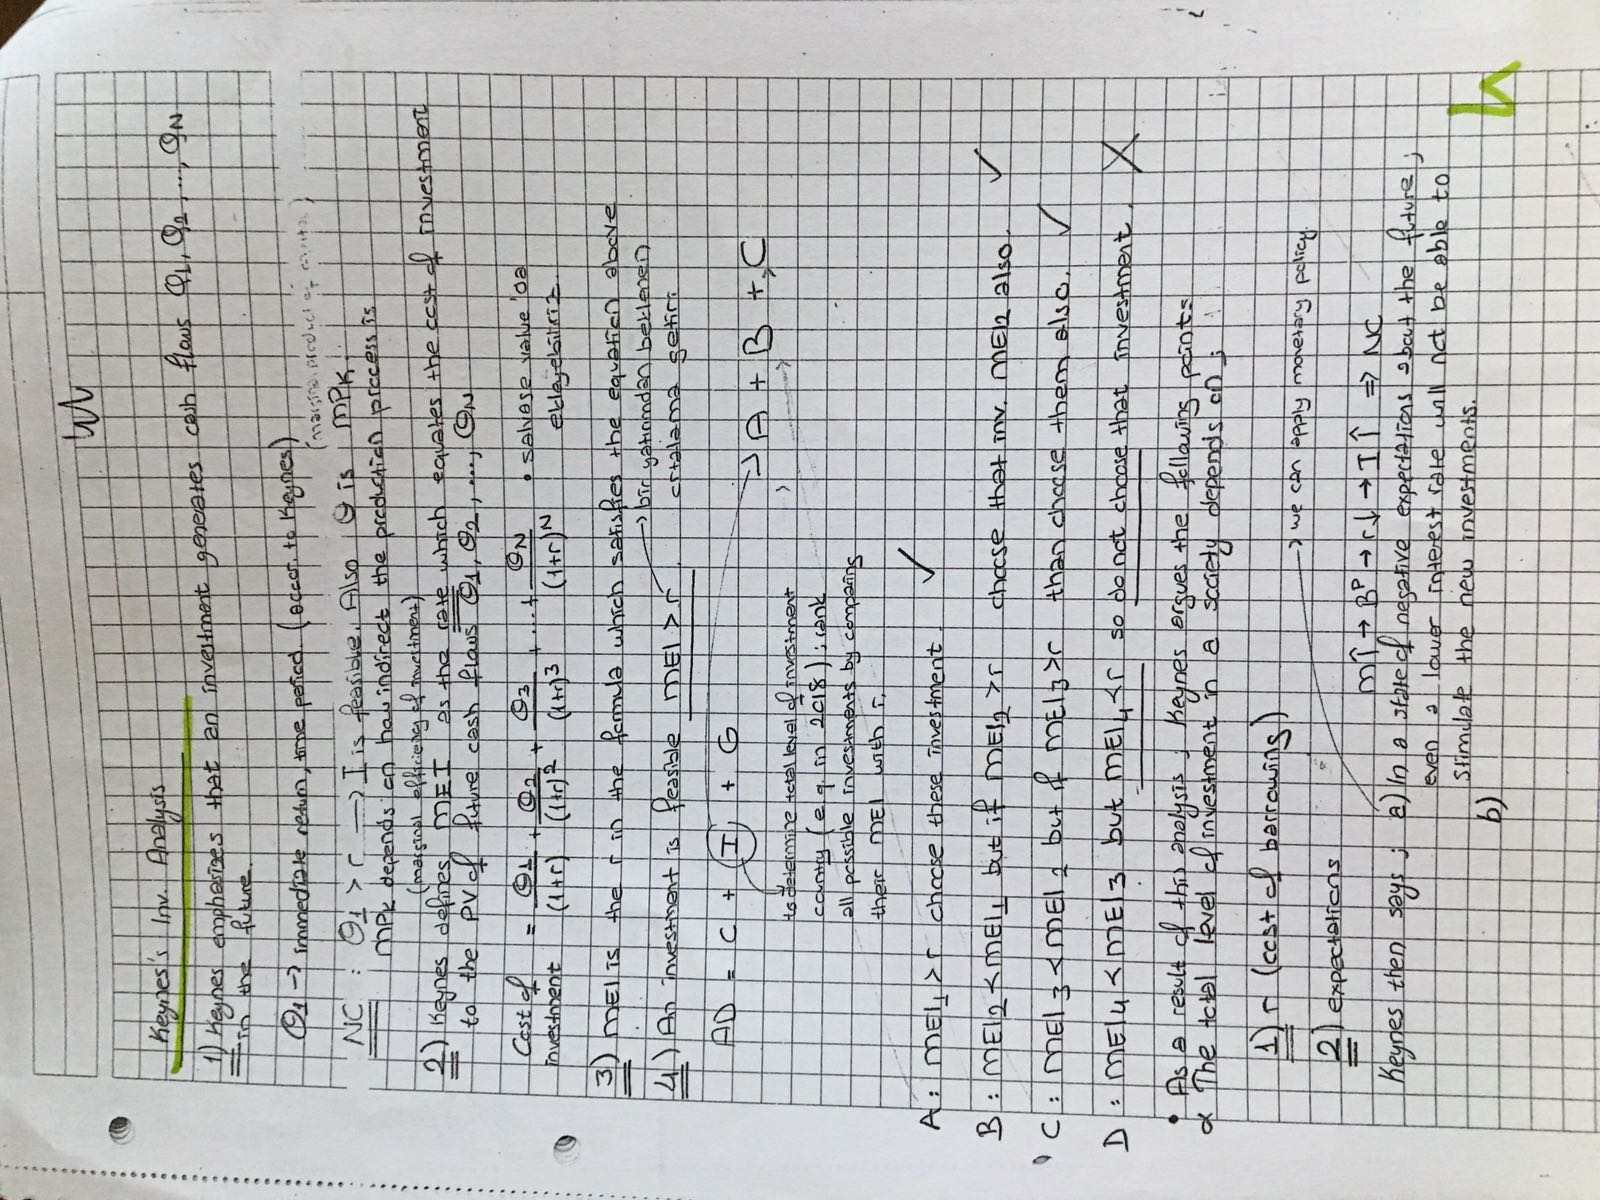 Keynes's Inv. Analysis
1) Keynes emphasizes that an investment generates cash flows Q1, Q2, ..., QN
in the future.
Q1 → immediate return, time period. (accor. to Keynes)
(marginal product of capital)
NC : Q1 > r → I is feasible. Also Q is MPK.
MPK depends on how indirect the production process is
(marginal efficiency of investment)
2) Keynes defines MEI as the rate which equates the cost of investment
to the PV of future cash flows Q1, Q2, ..., QN
Cost of investment = Q1/(1+r) + Q2/(1+r)^2 + Q3/(1+r)^3 + ... + QN/(1+r)^N
• salvage value 'da
ekleyebiliriz.
3) MEI is the r in the formula which satisfies the equation above
4) An investment is feasible MEI > r.
→ bir yatırımdan beklenen
ortalama getiri.
AD = C + I + G
→ A + B + C
to determine total level of investment
country (e.g. in 2018); rank
all possible investments by comparing
their MEI with r.
A : MEI1 > r choose these investment. ✓
B : MEI2 < MEI1 but if MEI2 > r choose that inv. MEI2 also. ✓
• C : MEI3 < MEI2 but if MEI3 > r than choose them also. ✓
D : MEI4 < MEI3 but MEI4 < r so do not choose that investment. X
• As a result of this analysis; Keynes argues the following point:
α The total level of investment in a society depends on;
1) r (cost of borrowing)
→ we can apply monetary policy.
2) expectations
M↑ → B^P → r↓ → I↑ ⇒ NC
Keynes then says; a) In a state of negative expectations about the future,
even a lower interest rate will not be able to
stimulate the new investments.
b)